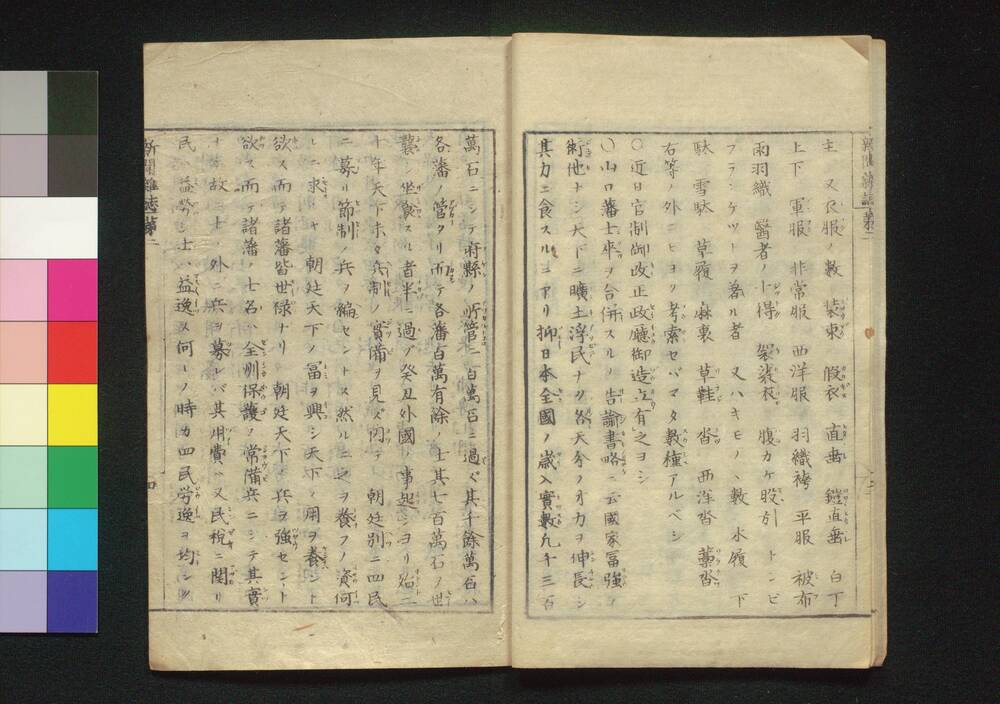 主 又衣服ノ數 裝束 假衣 直垂 鎧直垂 白丁
上下 軍服 非常服 西洋服 羽織袴 平服 被布
雨羽織 醫者ノ十得 袈裟衣 腹カケ股引 トンビ
フランケツトヲ着ル者 又ハキモノヽ數 木履 下
駄 雪駄 草履 麻裏 草鞋 沓 西洋沓 藁沓
右等ノ外ニモヨク考索セバマタ數種アルベシ
〇近日官制御改正政廳御造立有之ヨシ
〇山口藩士卒ヲ合併スルノ告諭書略ニ云國家冨強ノ
術他ナシ天下ニ曠土浮民ナク各天分ノ才力ヲ伸長シ
其力ニ食スルニアリ抑日本全國ノ歳入實數九千三百
萬石ニシテ府縣ノ所管ニ百萬石ニ過ズ其千餘萬石ハ
各藩ノ管タリ而テ各藩百萬有餘ノ士其七百萬石ノ世
襲シ坐食スル者半ニ過グ癸丑外國ノ事起シヨリ殆二
十年天下未タ兵制ノ實備ヲ見ズ因テ 朝廷別ニ四民
ニ募リ節制ノ兵ヲ編セントス然ルニ之ヲ養フノ資何
レニ求ンヤ 朝廷天下ノ冨ヲ興シ天下ノ用ヲ養ント
欲ス而テ諸藩皆世禄ナリ 朝廷天下ノ兵ヲ強セント
欲ス而テ諸藩ノ士名ハ全州保護ノ常備兵ニシテ其實
ナシ故ニ士ノ外ニ兵ヲ募レバ其用費ハ又民税ニ関リ
民ハ益勞シ士ハ益逸ス何レノ時カ四民労逸ヲ均シク
新聞雜誌第二
四